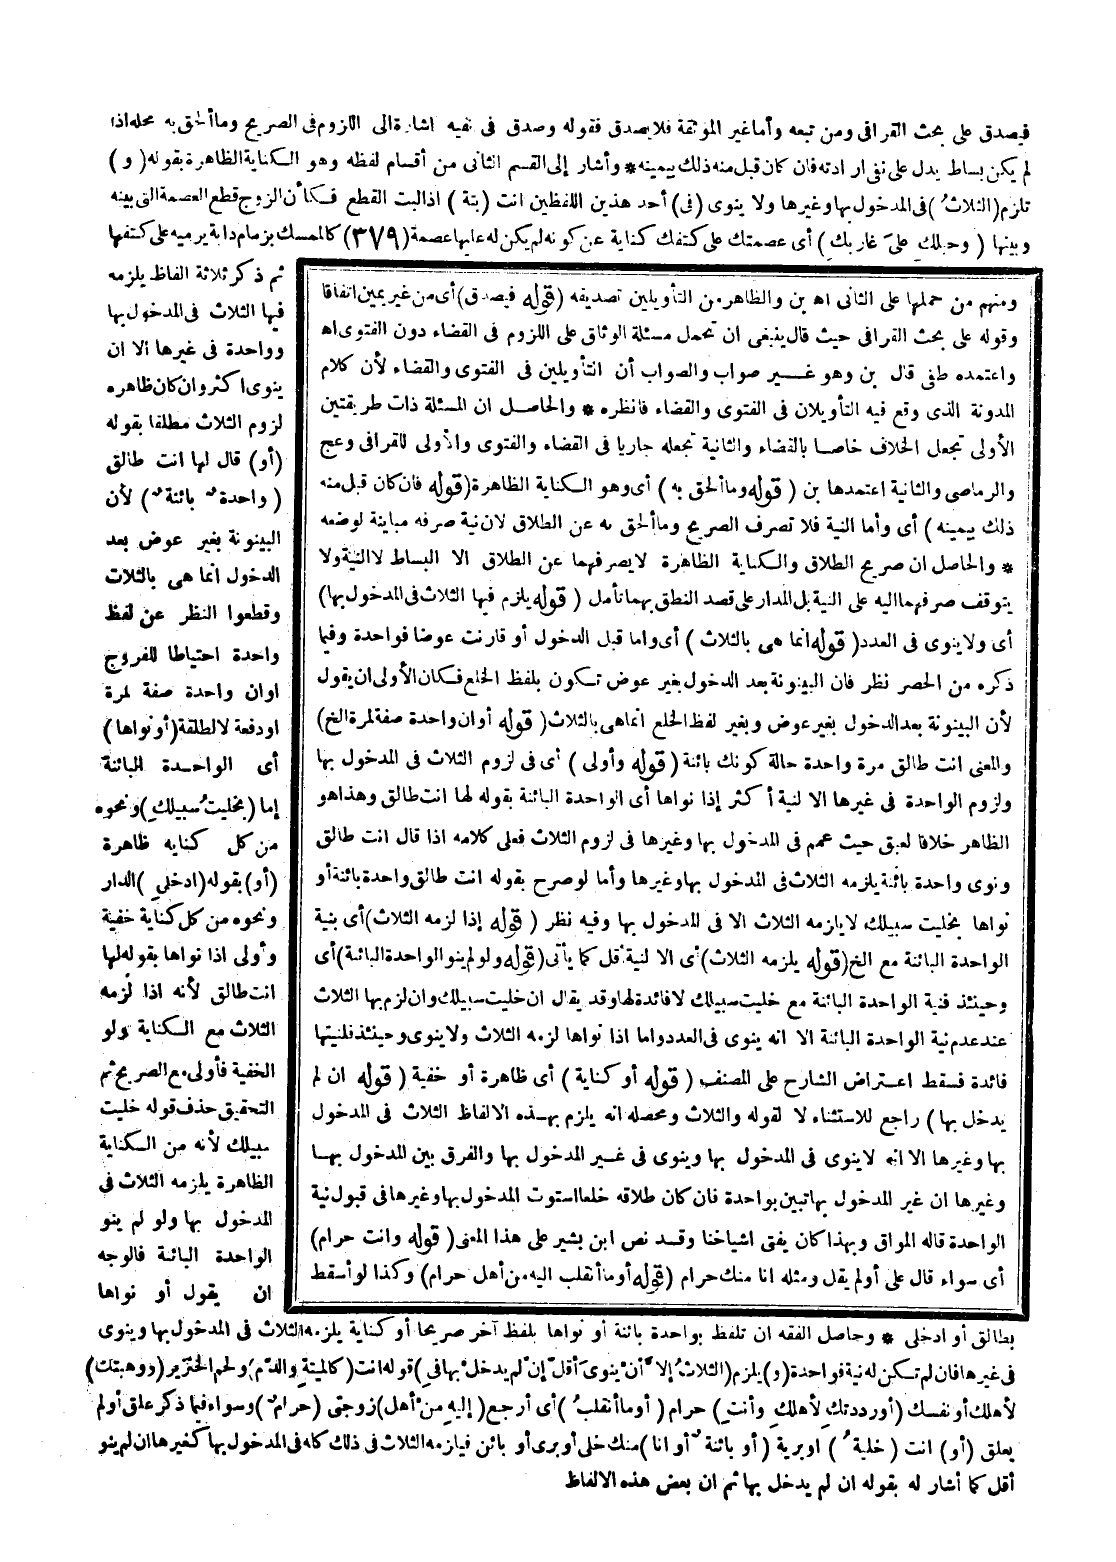 فيصدق على بحث القرافى ومن تبعه وأما غير الموثقة فلا يصدق فقوله وصدق فى نفيه اشارة الى اللزوم فى الصريح وما ألحق به محله اذا
لم يكن بساط يدل على نفى ارادته فان كان قبل منه ذلك بيمينه * وأشار إلى القسم الثانى من أقسام لفظه وهو الكناية الظاهرة بقوله ( و )
تلزم (الثلاثُ) فى المدخول بها وغيرها ولا ينوى (فى) أحد هذين اللفظين انت (بتة) اذ البت القطع فكأن الزوج قطع العصمة التى بينه
وبينها ( وحبلكِ علىَ غاربكِ ) أى عصمتك على كتفك كناية عن كونه لم يكن له عليها عصمة (٣٧٩) كالممسك بزمام دابة يرميه على كتفها
ثم ذكر ثلاثة الفاظ يلزمه
فيها الثلاث فى المدخول بها
وواحدة فى غيرها الا ان
ينوى اكثر وان كان ظاهره
لزوم الثلاث مطلقا بقوله
(أو) قال لها انت طالق
( واحدةً بائنةً ) لأن
البينونة بغير عوض بعد
الدخول انما هى بالثلاث
وقطعوا النظر عن لفظ
واحدة احتياطا للفروج
اوان واحدة صفة لمرة
اودفعة لا لطلقة (أو نواها)
أى الواحدة البائنة
إما (بخليتُ سبيلكِ) ونحوه
من كل كنايه ظاهرة
(أو) بقوله (ادخلى) الدار
ونحوه من كل كناية خفية
وأولى اذا نواها بقوله لها
انت طالق لأنه اذا لزمه
الثلاث مع الكناية ولو
الخفية فأولى مع الصريح ثم
التحقيق حذف قوله خليت
سبيلك لأنه من الكناية
الظاهرة يلزمه الثلاث فى
المدخول بها ولو لم ينو
الواحدة البائنة فالوجه
ان يقول أو نواها
ومنهم من حملها على الثانى اه بن والظاهر من التأويلين تصديقه (قوله فيصدق) أى من غير يمين اتفاقا
وقوله على بحث القرافى حيث قال ينبغى ان تحمل مسئلة الوثاق على اللزوم فى القضاء دون الفتوى اه
واعتمده طفى قال بن وهو غير صواب والصواب أن التأويلين فى الفتوى والقضاء لأن كلام
المدونة الذى وقع فيه التأويلان فى الفتوى والقضاء فانظره * والحاصل ان المسئلة ذات طريقتين
الأولى تجعل الخلاف خاصا بالقضاء والثانية تجعله جاريا فى القضاء والفتوى والأولى للقرافى وعج
والرماصى والثانية اعتمدها بن ( قوله وما ألحق به ) أى وهو الكناية الظاهرة (قوله فان كان قبل منه
ذلك بيمينه ) أى وأما النية فلا تصرف الصريح وما ألحق به عن الطلاق لان نية صرفه مباينة لوضعه
* والحاصل ان صريح الطلاق والكناية الظاهرة لا يصرفهما عن الطلاق الا البساط لا النية ولا
يتوقف صرفهما اليه على النية بل المدار على قصد النطق بهما تأمل ( قوله يلزم فيها الثلاث فى المدخول بها)
أى ولا ينوى فى العدد ( قوله انما هى بالثلاث ) أى واما قبل الدخول أو قارنت عوضا فواحدة وفيما
ذكره من الحصر نظر فان البينونة بعد الدخول بغير عوض تكون بلفظ الخلع فكان الأولى ان يقول
لأن البينونة بعد الدخول بغير عوض وبغير لفظ الخلع انما هى بالثلاث ( قوله أوان واحدة صفة لمرة الخ)
والمعنى انت طالق مرة واحدة حالة كونك بائنة ( قوله وأولى ) أى فى لزوم الثلاث فى المدخول بها
ولزوم الواحدة فى غيرها الا لنية أكثر إذا نواها أى الواحدة البائنة بقوله لها انت طالق وهذا هو
الظاهر خلافا لعبق حيث عمم فى المدخول بها وغيرها فى لزوم الثلاث فعلى كلامه اذا قال انت طالق
ونوى واحدة بائنة يلزمه الثلاث فى المدخول بها وغيرها وأما لو صرح بقوله انت طالق واحدة بائنة أو
نواها بخليت سبيلك لا يلزمه الثلاث الا فى المدخول بها وفيه نظر ( قوله إذا لزمه الثلاث) أى بنية
الواحدة البائنة مع الخ (قوله يلزمه الثلاث) أى الا لنية أقل كما يأتى (قوله ولو لم ينو الواحدة البائنة) أى
وحينئذ فنية الواحدة البائنة مع خليت سبيلك لا فائدة لها وقد يقال ان خليت سبيلك وان لزم بها الثلاث
عند عدم نية الواحدة البائنة الا انه ينوى فى العدد واما اذا نواها لزمه الثلاث ولا ينوى وحينئذ فلنيتها
فائدة فسقط اعتراض الشارح على المصنف ( قوله أو كناية ) أى ظاهرة أو خفية ( قوله ان لم
يدخل بها ) راجع للاستثناء لا لقوله والثلاث ومحصله انه يلزم بهذه الالفاظ الثلاث فى المدخول
بها وغيرها الا انه لا ينوى فى المدخول بها وينوى فى غير المدخول بها والفرق بين المدخول بها
وغيرها ان غير المدخول بها تبين بواحدة فان كان طلاقه خلعا استوت المدخول بها وغيرها فى قبول نية
الواحدة قاله المواق وبهذا كان يفتى اشياخنا وقد نص ابن بشير على هذا المعنى ( قوله وانت حرام)
أى سواء قال على أو لم يقل ومثله انا منك حرام (قوله أو ما أنقلب اليه من أهل حرام) وكذا لو أسقط
بطالق أو ادخلى * وحاصل الفقه ان تلفظ بواحدة بائنة أو نواها بلفظ آخر صريحا أو كناية يلزمه الثلاث فى المدخول بها وينوى
فى غيرها فان لم تكن له نية فواحدة (و) يلزم (الثلاثُ إلاَّ أنْ ينوىَ أقلَّ إنْ لم يدخلْ بها فى) قوله انت (كالميتةِ والدَّمِ) ولحم الخنزير (ووهبتكِ)
لأهلك أو نفسك (أورددتكِ لأهلكِ وأنتِ) حرام (أوما أنقلبُ) أى أرجع (إليهِ منْ أهل) زوجتى (حرامٌ) وسواء فيما ذكر علق أو لم
يعلق (أو) انت (خليةٌ) او برية (أو بائنةٌ أو انا) منك خلى أو برى أو بائن فيلزمه الثلاث فى ذلك كله فى المدخول بها كغيرها ان لم ينو
أقل كما أشار له بقوله ان لم يدخل بها ثم ان بعض هذه الالفاظ